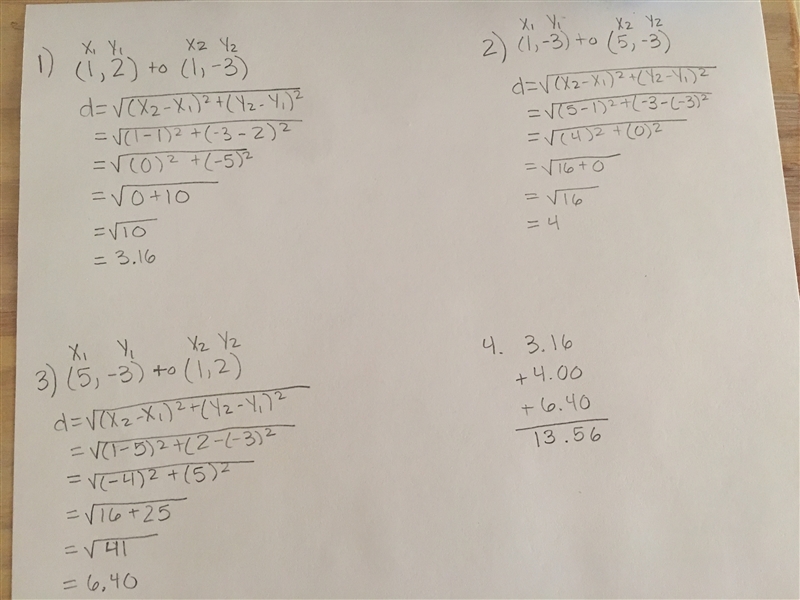 1) X₁ Y₁ X₂ Y₂
(1, 2) to (1, -3)
d=√(X₂-X₁)²+(Y₂-Y₁)²
=√(1-1)²+(-3-2)²
=√(0)²+(-5)²
=√0+10
=√10
= 3.16
2) X₁ Y₁ X₂ Y₂
(1,-3) to (5,-3)
d=√(X₂-X₁)²+(Y₂-Y₁)²
=√(5-1)²+(-3-(-3)²
=√(4)²+(0)²
=√16+0
=√16
= 4
3) X₁ Y₁ X₂ Y₂
(5, -3) to (1,2)
d=√(X₂-X₁)²+(Y₂-Y₁)²
=√(1-5)²+(2-(-3)²
=√(-4)²+(5)²
=√16+25
=√41
= 6.40
4. 3.16
+4.00
+6.40
13.56